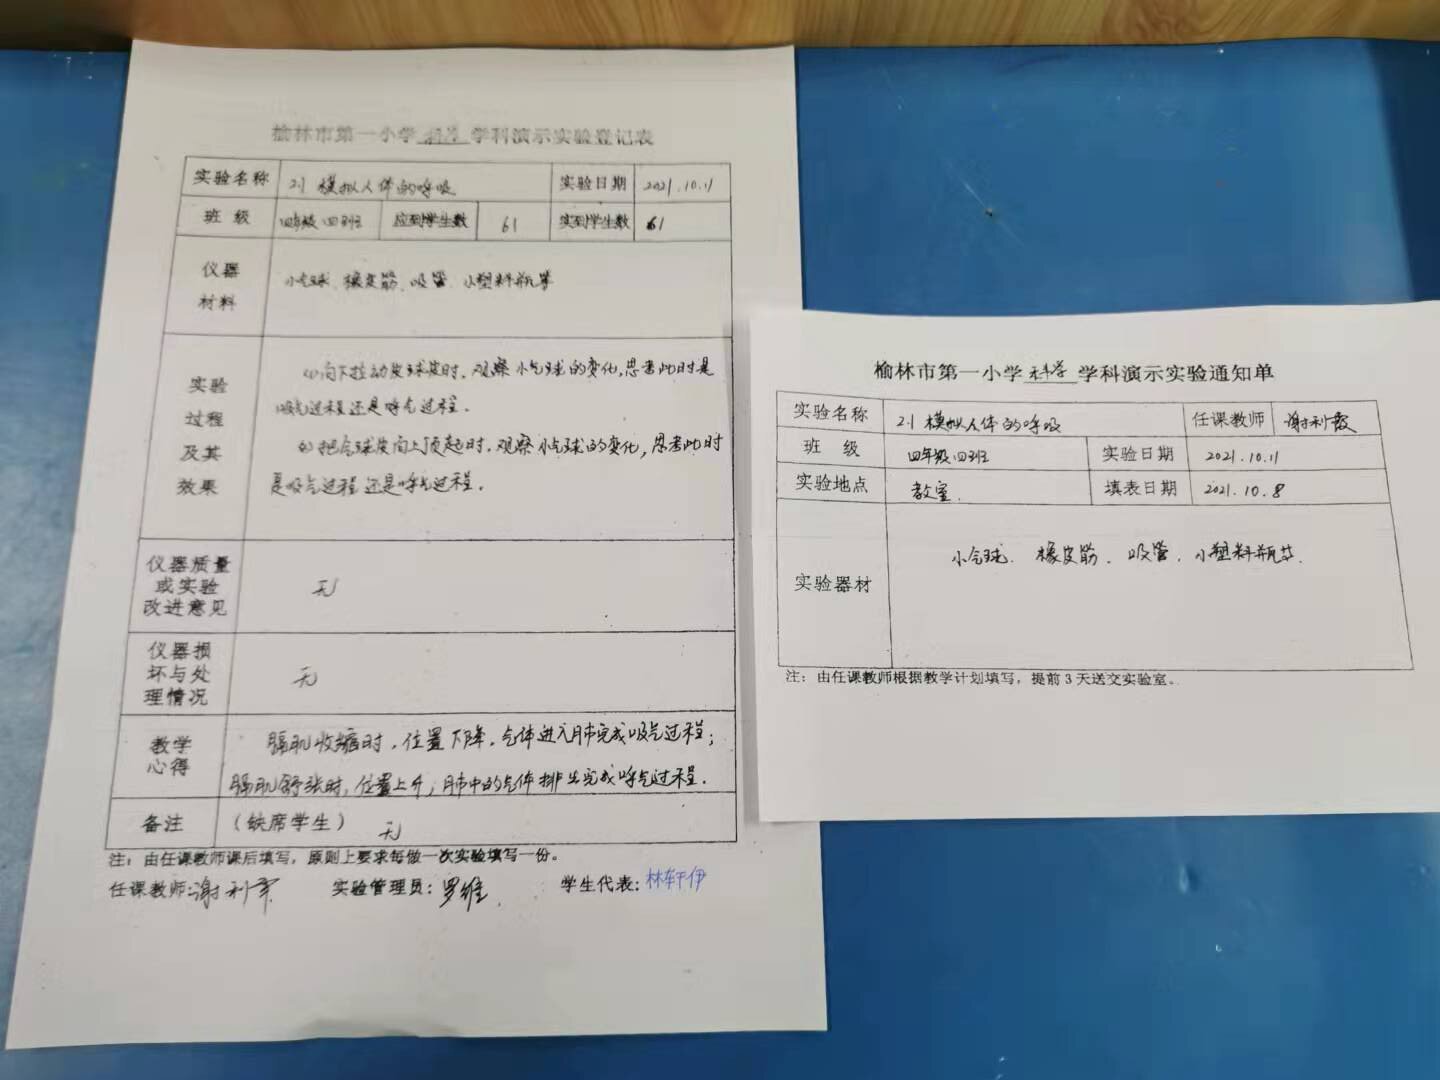 榆林市第一小学 科学 学科演示实验登记表
实验名称 2.1 模拟人体的呼吸 实验日期 2021.10.11
班 级 四年级四班 应到学生数 61 实到学生数 61
仪器
材料
小气球、橡皮筋、吸管、小塑料瓶等
实验
过程
及其
效果
(1)向下拉动气球皮时,观察小气球的变化,思考此时是
吸气过程还是呼气过程。
(2)把气球皮向上顶起时,观察小气球的变化,思考此时
是吸气过程还是呼气过程。
仪器质量
或实验
改进意见
无
仪器损
坏与处
理情况
无
教学
心得
膈肌收缩时,位置下降,气体进入肺完成吸气过程;
膈肌舒张时,位置上升,肺中的气体排出完成呼气过程.
备注 (缺席学生) 无
注:由任课教师课后填写,原则上要求每做一次实验填写一份。
任课教师:谢利霞 实验管理员:罗维 学生代表:林轩伊
榆林市第一小学 科学 学科演示实验通知单
实验名称 2.1 模拟人体的呼吸 任课教师 谢利霞
班 级 四年级四班 实验日期 2021.10.11
实验地点 教室. 填表日期 2021.10.8
实验器材
小气球、橡皮筋、吸管、小塑料瓶等.
注:由任课教师根据教学计划填写,提前3天送交实验室。